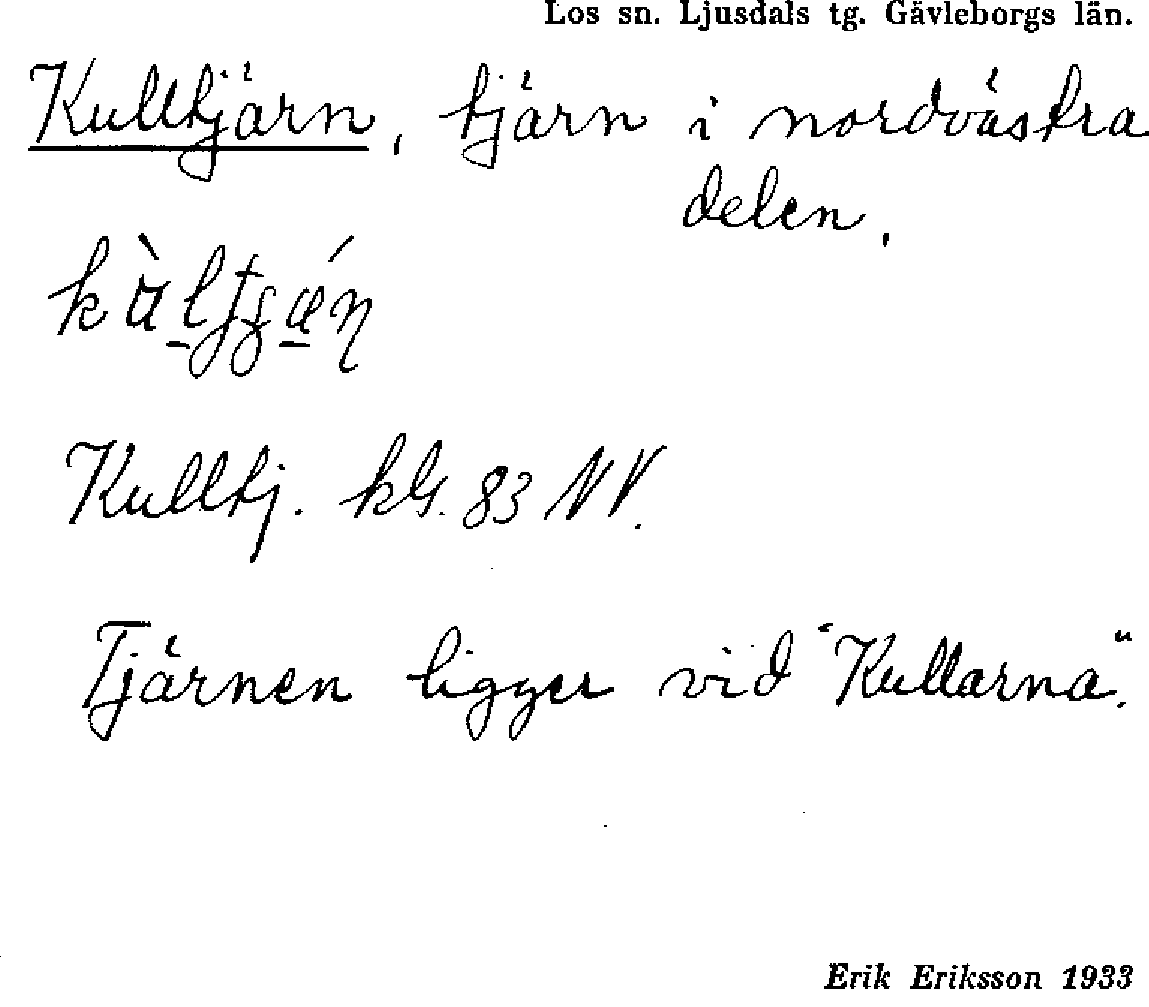 Los sn. Ljusdals tg. Gävleborgs län.
Kulltjärn, tjärn i nordvästra
delen.
Kulltj. kbl. 83 NV.
Tjärnen ligger vid "Kullarna".
Erik Eriksson 1933